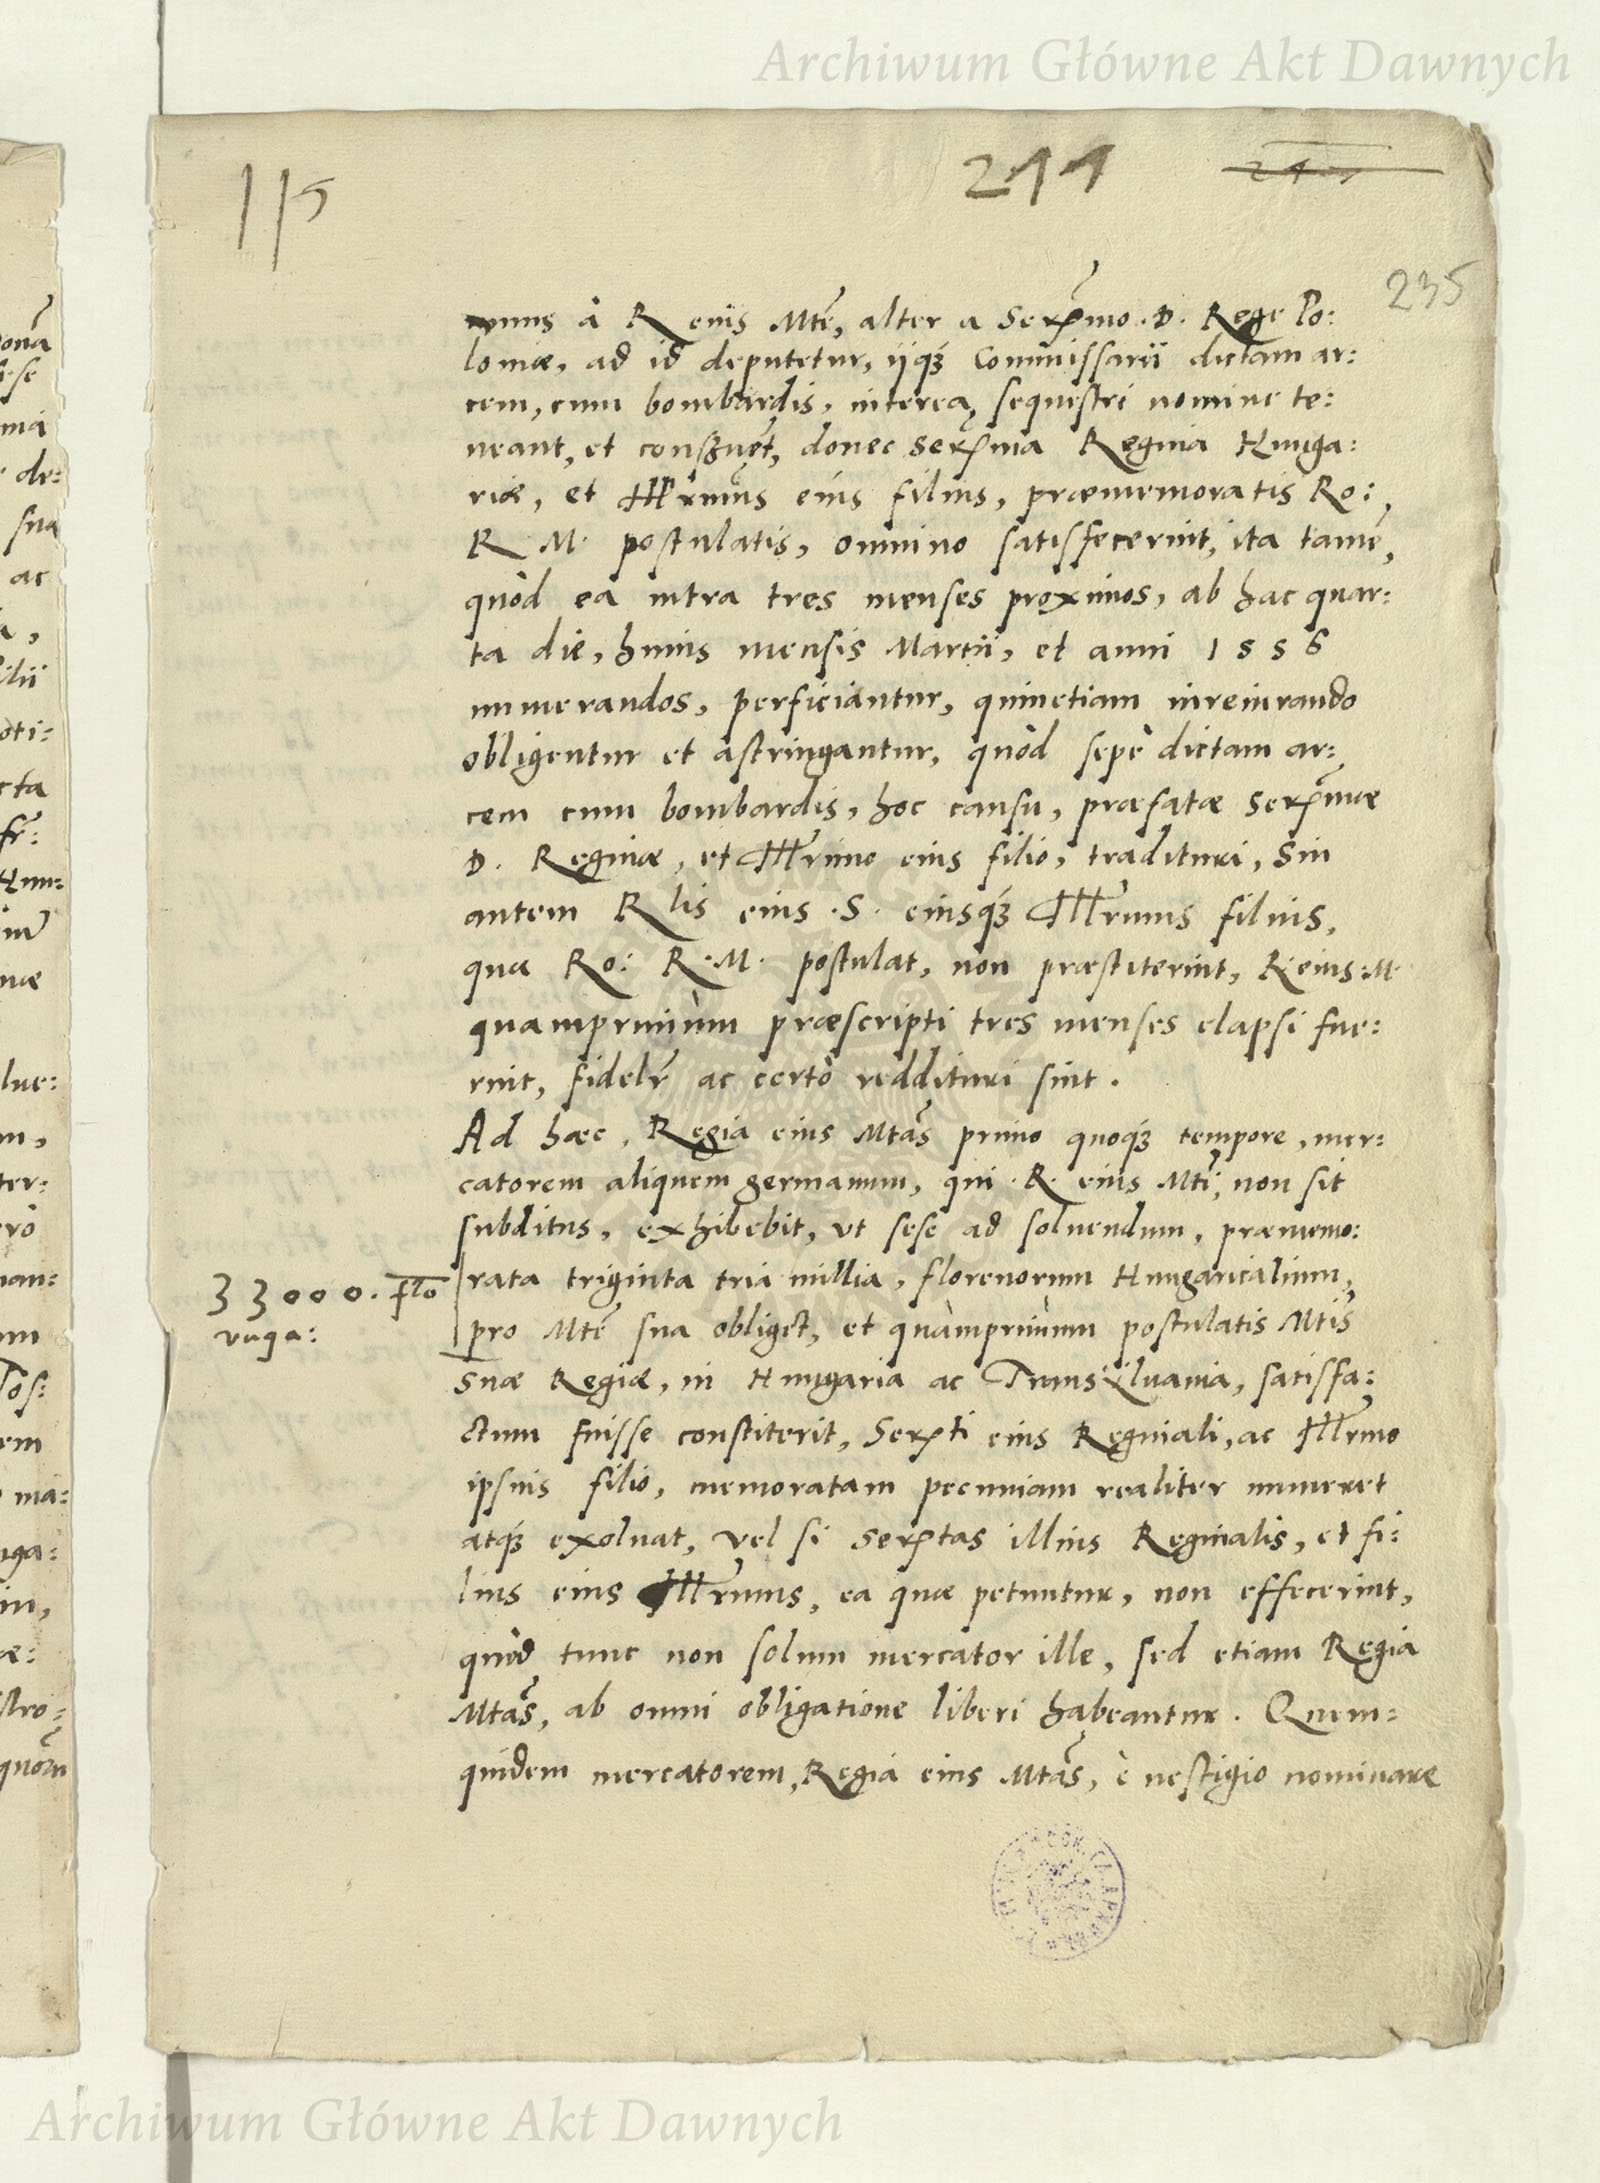 Archiwum Główne Akt Dawnych
115
211
235
unus à R eius Mtē, alter a Serͫmo .D. Rege Po:
loniæ, ad id deputetur, ijqȝ Commissarii dictam ar:
cem, cum bombardis, interea, sequestri nomine te:
neant, et conseruēt, donec Serͫma Regina Hunga:
riæ, et Illr̄mus eius filius, præmemoratis Ro:
R. M. postulatis, omnino satisfecerint, ita tamē,
quòd ea intra tres menses proximos, ab hac quar:
ta die, huius mensis Martii, et anni 1556
numerandos, perficiantur, quinetiam iureiurando
obligentur et astringantur, quòd sepè dictam ar:
cem cum bombardis, hoc casu, præfatæ Serͫmæ
D. Reginæ, et Illr̄imo eius filio, tradituri, Sin
autem Rlis eius .S. eiusqȝ Illr̄mus filius,
quæ Ro: R.M. postulat, non præstiterint, R. eius .M.
quamprimùm præscripti tres menses elapsi fue:
rint, fidelr̄ ac certò reddituri sint.
Ad hæc, Regia eius Mtās primo quoqȝ tempore, mer:
catorem aliquem germanum, qui .R. eius Mti, non sit
subditus, exhibebit, vt sese ad soluendum, præmemo:
rata triginta tria millia, florenorum Hungaricalium,
33000. flo
vnga:
pro Mtē sua obliget, et quàmprimùm postulatis Mtis
Suæ Regiæ, in Hungaria ac Transsiluania, satisfa:
ctum fuisse constiterit, Serͭti eius Reginali, ac Illr̄mo
ipsius filio, memoratam pecuniam realiter numeret
atqȝ exoluat, vel si Serͭtas illius Reginalis, et fi:
lius eius Illr̄mus, ea quæ petuntur, non effecerint,
quòd tunc non solum mercator ille, sed etiam Regia
Mtās, ab omni obligatione liberi habeantur. Quem:
quidem mercatorem, Regia eius Mtās, è uestigio nominare
Archiwum Główne Akt Dawnych